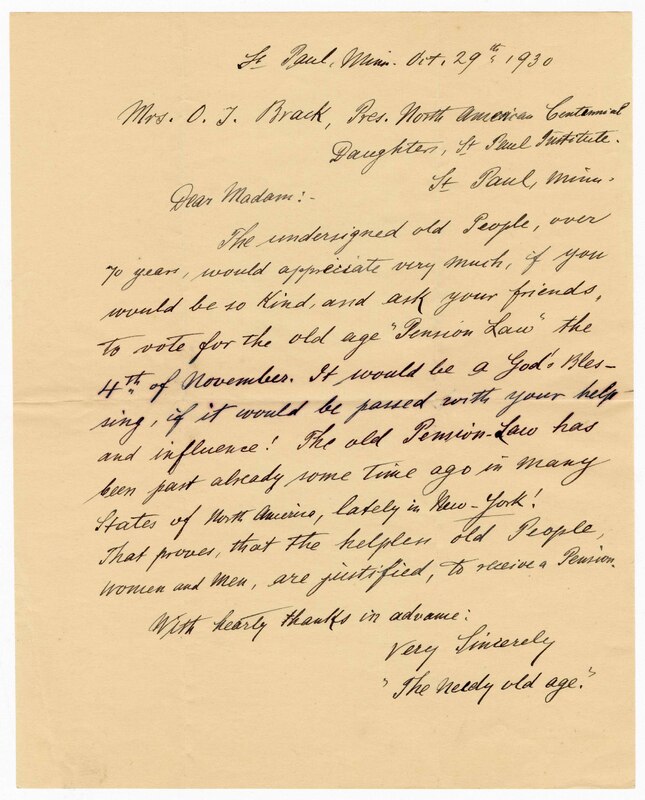 St Paul, Minn. Oct. 29th 1930
Mrs. O. J. Brack, Pres. North American Centennial
Daughters, St Paul Institute.
St Paul, Minn.
Dear Madam:-
The undersigned old People, over
70 years, would appreciate very much, if you
would be so Kind, and ask your friends,
to vote for the old age "Pension Law" the
4th of November. It would be a God's Bles-
sing, if it would be passed with your help
and influence! The old Pension-Law has
been past already some time ago in many
States of North America, lately in New-York!
That proves, that the helpless old People,
women and Men, are justified, to receive a Pension.
With hearty thanks in advance:
Very Sincerely
"The Needy old age."